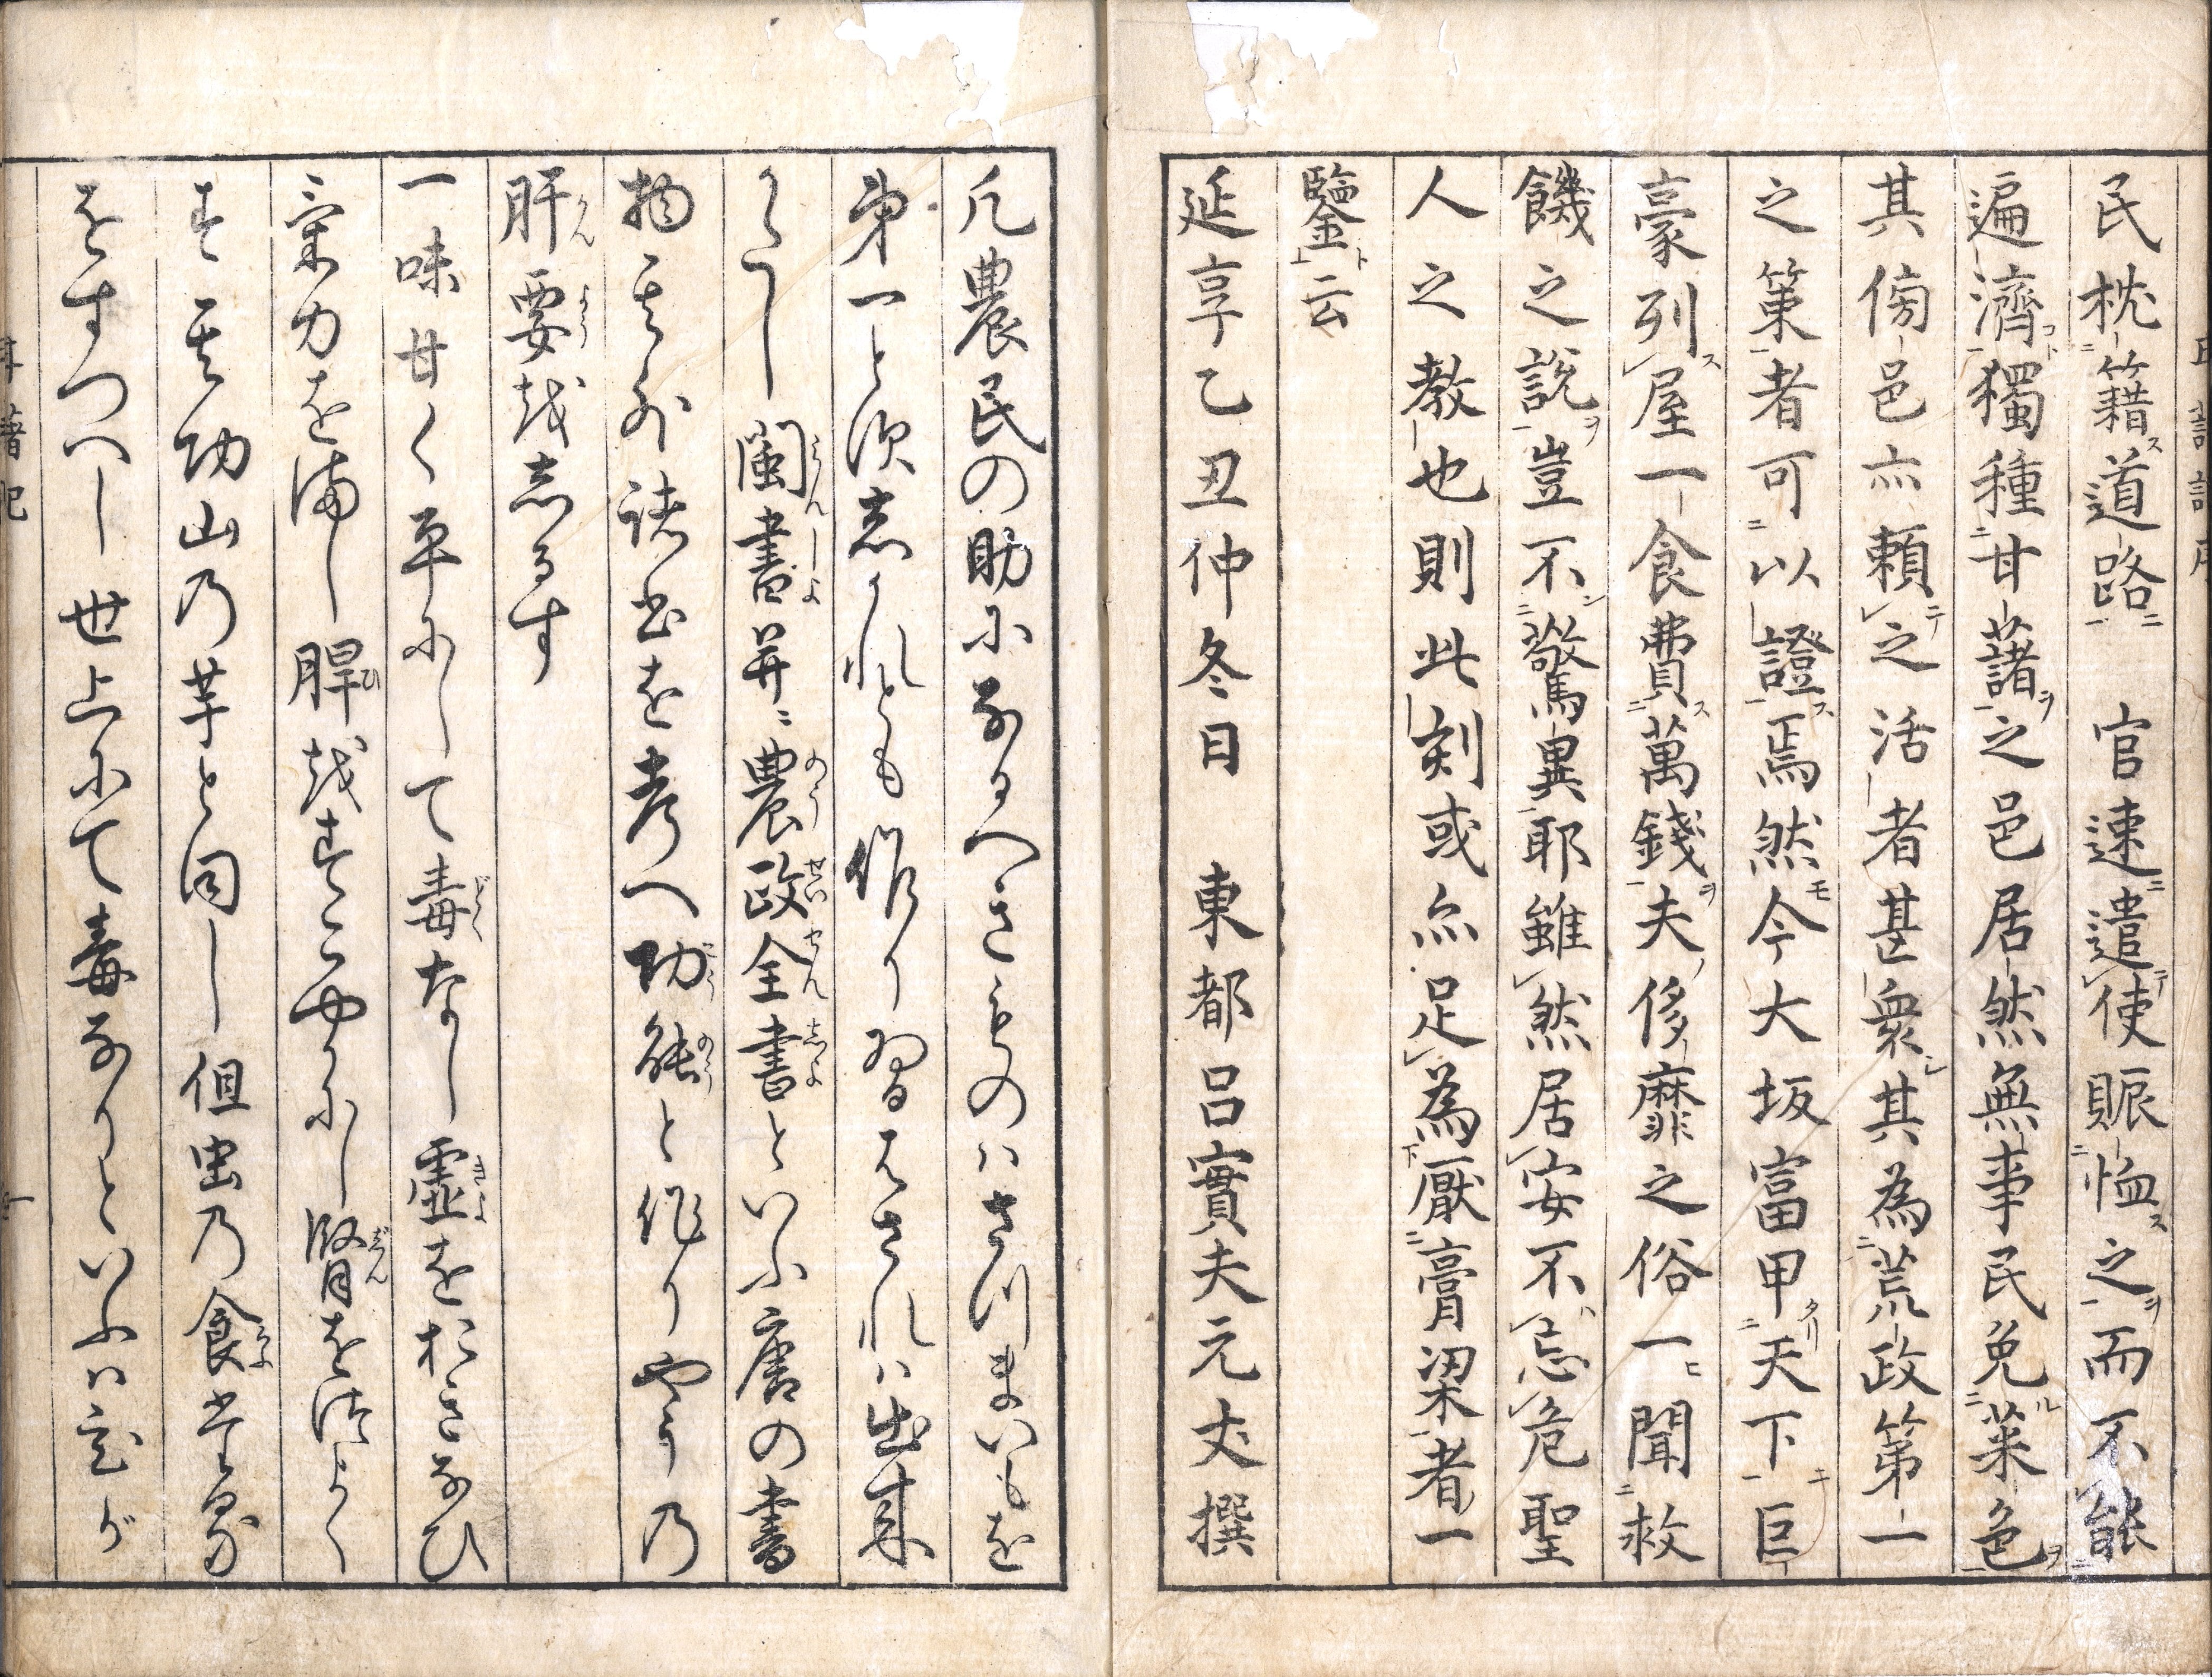 民枕籍道路官速遣使賑恤之而不能
遍濟獨種甘藷之邑居然無事民免菜色
其傍邑亦頼之活者甚衆其為荒政第一
之策者可以證焉然今大坂富甲天下巨
豪列屋一食費萬錢夫侈靡之俗一聞救
饑之說豈不驚異耶雖然居安不忘危聖
人之教也則此刻或亦足為厭膏梁者一
鑒云
延享乙丑仲冬日　東都呂實夫元丈撰
凡農民の助になるへきものハさつまいもを
第一と須志かれとも作り習はされハ出来
かたし閩書并ニ農政全書といふ唐の書
物其外諸書を考へ功能と作りやう乃
肝要越志るす
一味甘く平にして毒なし虚をおきなひ
氣力をまし脾越すこやかにし腎を法よく
す其功山乃芋と同し但虫乃食
をすつへし世上にて毒なりといふハ